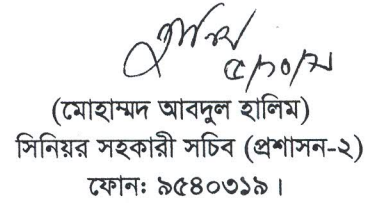 (মোহাম্মদ আবদুল হালিম)
সিনিয়র সহকারী সচিব (প্রশাসন-২)
ফোনঃ ৯৫৪০৩১৯।